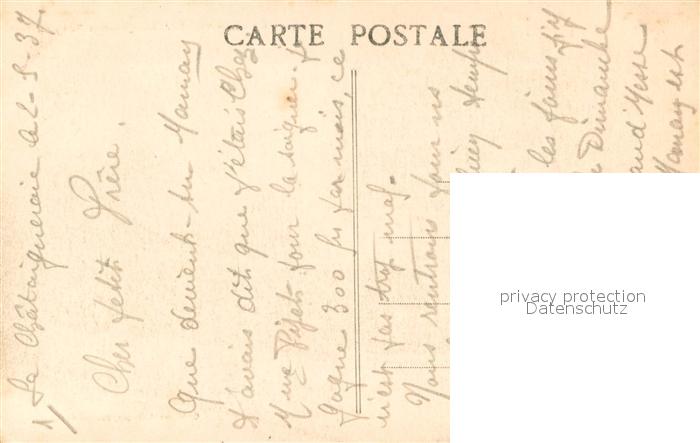 CARTE POSTALE
1/ La Châtaigneraie le 2-5-37.
Cher petit frère,
Que devient-tu Maman
t'avais dit que j'étais chez
Mme pour la soigner je
gagne 300 frs par mois, ce
n'est pas trop mal.
Nous rentrons
temps
les foins
Dimanche
Messe
Maman est
privacy protection
Datenschutz